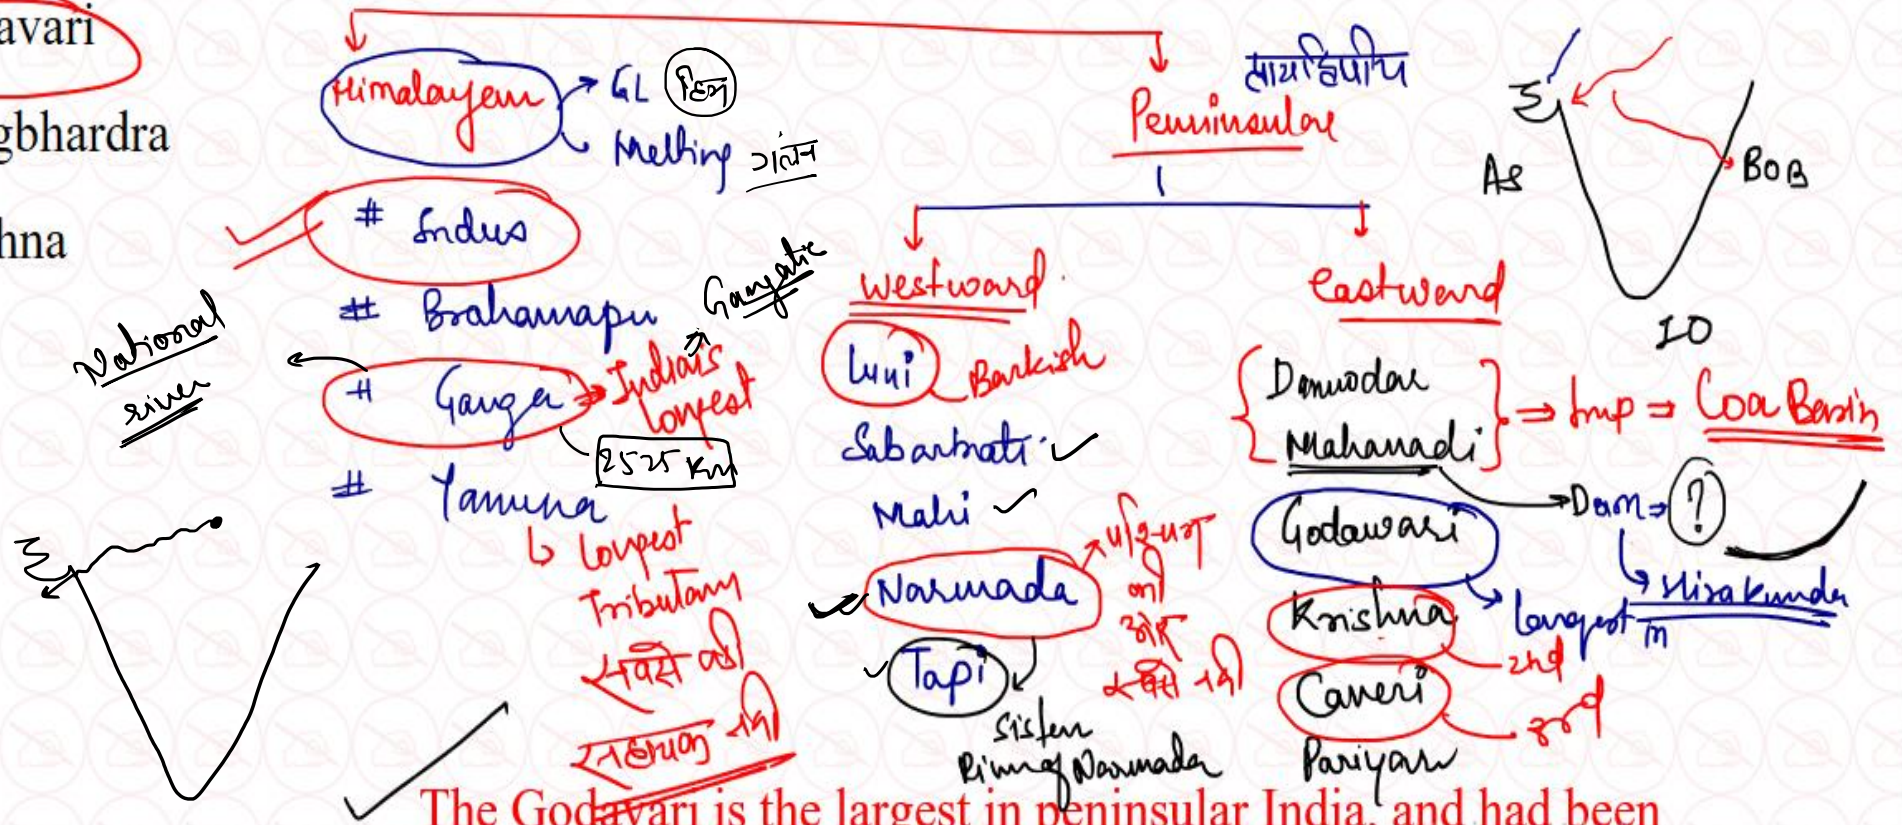 avari
gbhardra
hna
Himalayan
GL हिम
Melting गलन
# Indus
# Brahamapu
# Ganga
India's
Longest
Gangatic
2525 Km
National
river
# Yamuna
Longest
Tributary
सबसे
सहायक नदी
प्रायद्विपीय
Peninsular
westward
Luni
Barkish
Sabarmati
Mahi
Narmada
और
Tapi
Sister
River of Narmada
eastward
Damodar
Mahanadi
Imp ⇒ Coa Basin
Dam ⇒ ?
Hirakunda
Godawari
Longest in
Krishna
2nd
Caveri
3rd
Pariyar
AS
BOB
IO
The Godavari is the largest in peninsular India, and had been